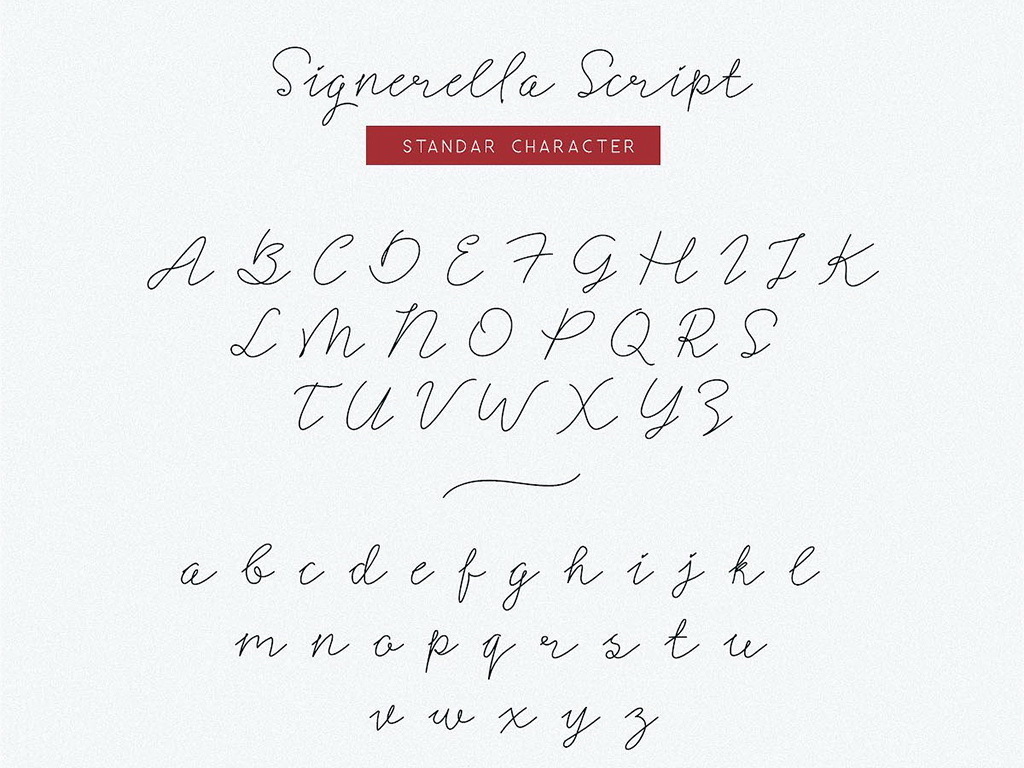 Signerella Script
STANDAR CHARACTER
A B C D E F G H I J K
L M N O P Q R S
T U V W X Y Z
a b c d e f g h i j k l
m n o p q r s t u
v w x y z